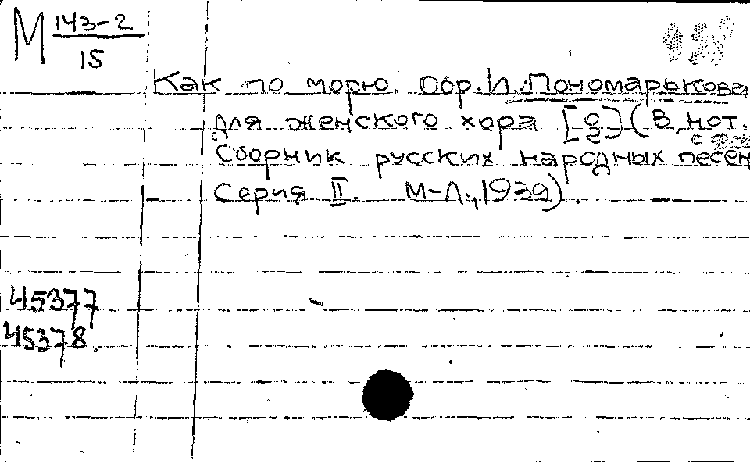 М 143-2
15
Как по морю. Обр. И. Пономарькова
для женского хора [a] (В нот.
Сборник русских народных песен
Серия II. М-Л., 1939).
45377
45378.